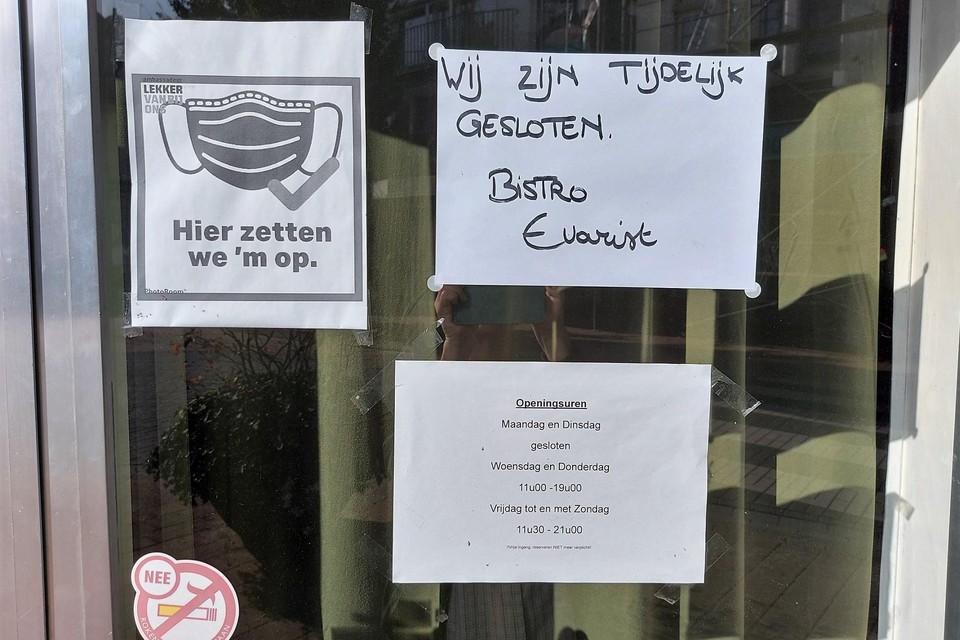 ambassadeur
LEKKER
VAN BIJ
ONS
Hier zetten
we 'm op.
PhotoRoom
Wij zijn tijdelijk
gesloten.
Bistro
Evarist
Openingsuren
Maandag en Dinsdag
gesloten
Woensdag en Donderdag
11u00 -19u00
Vrijdag tot en met Zondag
11u30 - 21u00
Vrije ingang, reserveren NIET meer verplicht!
NEE